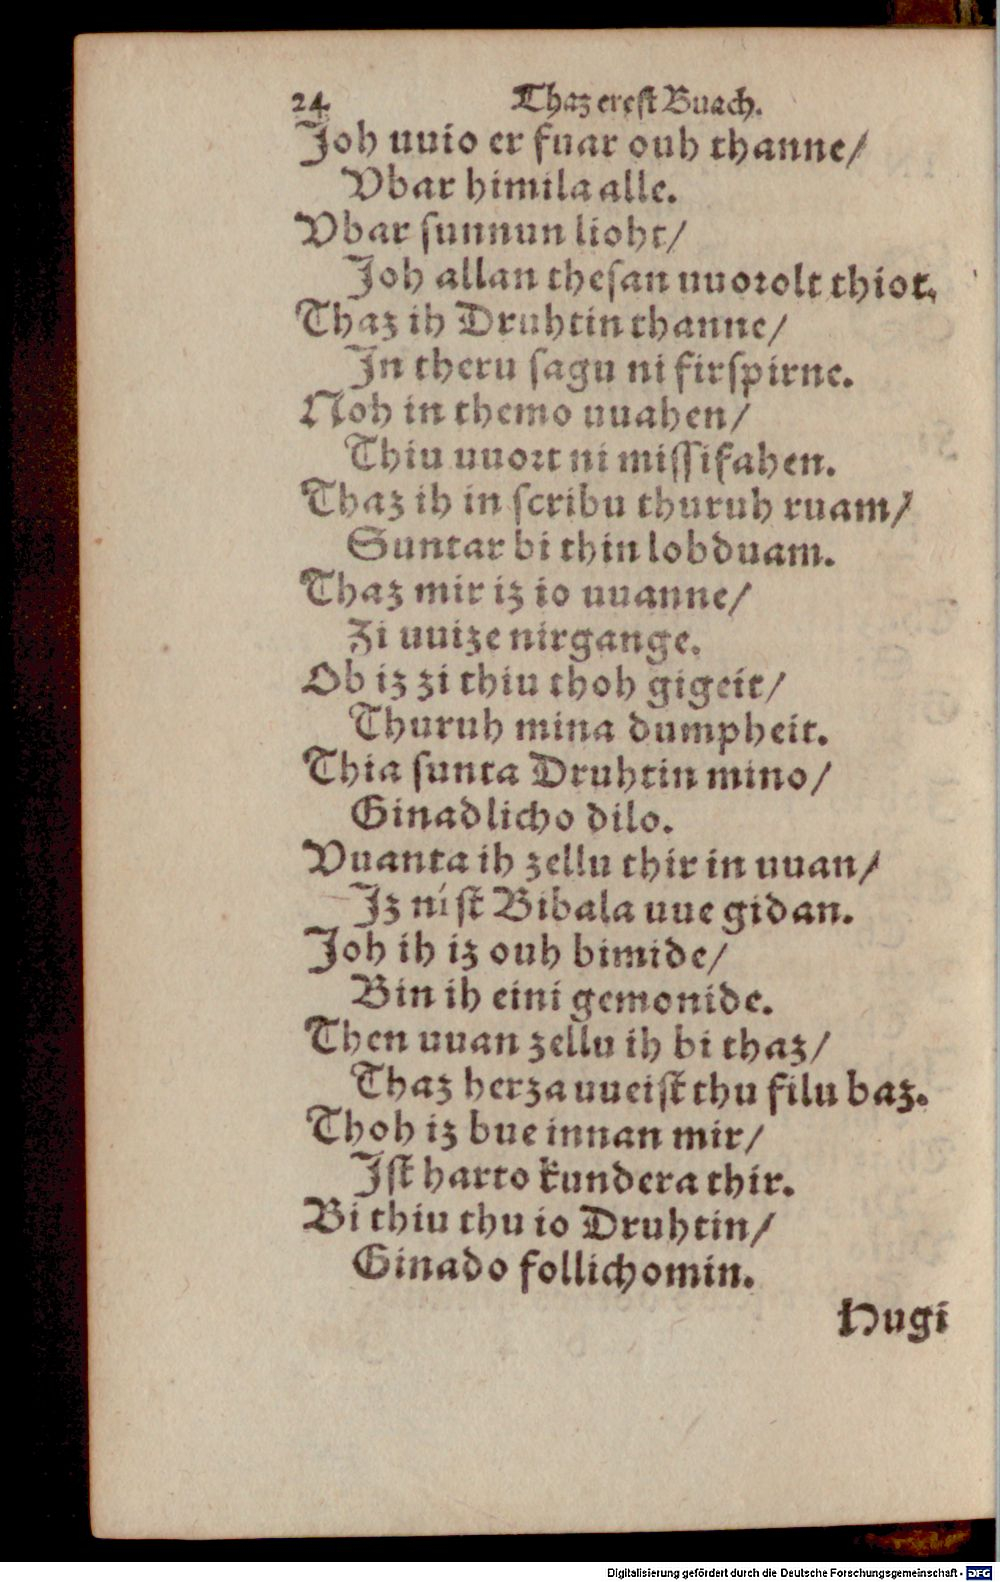 24 Thaz erest Buach.
Joh uuio er fuar ouh thanne/
Vbar himila alle.
Vbar sunnun lioht/
Joh allan thesan uuorolt thiot.
Thaz ih Druhtin thanne/
In theru sagu ni firspirne.
Noh in themo uuahen/
Thiu uuort ni missifahen.
Thaz ih in scribu thuruh ruam/
Suntar bi thin lobduam.
Thaz mir iz io uuanne/
Zi uuize nirgange.
Ob iz zi thiu thoh gigeit/
Thuruh mina dumpheit.
Thia sunta Druhtin mino/
Ginadlicho dilo.
Vuanta ih zellu thir in uuan/
Iz níst Bibala uue gidan.
Joh ih iz ouh bimide/
Bin ih eini gemonide.
Then uuan zellu ih bi thaz/
Thaz herza uueist thu filu baz.
Thoh iz bue innan mir/
Ist harto kundera thir.
Bi thiu thu io Druhtin/
Ginado follichomin.
Hugi
Digitalisierung gefördert durch die Deutsche Forschungsgemeinschaft - DFG